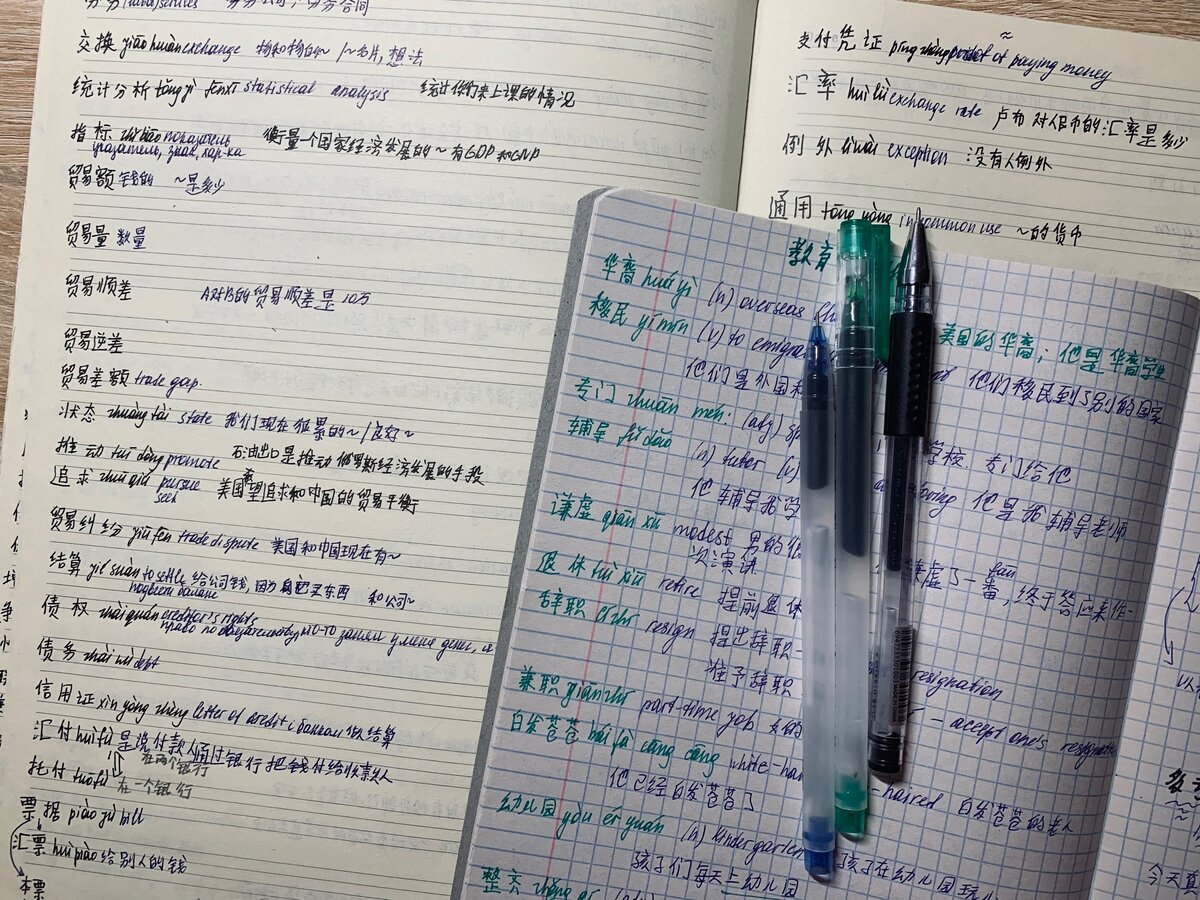 劳务(labor) services 劳务公司; 劳务合同
交换 jiāo huàn exchange 物和物的~ /~名片, 想法
统计分析 tǒng jì fēnxī statistical analysis 统计你们来上课的情况
指标 zhǐ biāo показатель
указатель, знак, хар-ка
衡量一个国家经济发展的~有GDP和GNP
贸易额 钱的 ~是多少
贸易量 数量
贸易顺差 A对B的贸易顺差是10万
贸易逆差
贸易差额 trade gap.
状态 zhuàng tài state 我们现在很累的~/良好~
推动 tuī dòng promote 石油出口是推动俄罗斯经济发展的手段
追求 zhuī qiú pursue
seek
美国希望追求和中国的贸易平衡
贸易纠纷 jiū fēn trade dispute 美国和中国现在有~
结算 jié suàn to settle 给公司钱, 因为自己买东西 和公司~
债权 zhài quán creditor's rights
право по обязательству,
债务 zhài wù debt
信用证 xìn yòng zhèng letter of credit с банком 做结算
汇付 huì fù 是说付款人通过银行把钱付给收款人
在两个银行
托付 tuō fù 在一个银行
票据 piào jù bill
汇票 huì piào 给别人的钱
本票
支付凭证 píng zhèng of paying money
汇率 huì lǜ exchange rate 卢布对人民币的汇率是多少
例外 lì wài exception 没有人例外
通用 tōng yòng in common use ~的货币
教育
华裔 huá yì (n) overseas 美国的华裔; 他是华裔学生
移民 yí mín (v) to emigra 他们移民到了别的国家
他们是外国移
专门 zhuān mén: (adj) sp 学校 专门给他
辅导 fǔ dǎo (n) tutor (v) 他是我辅导老师
他辅导我学
谦虚 qiān xū modest 男的 谦虚了一番, 终于答应来作一
fān
次演讲
退休 tuì xiū retire 提前退休
辞职 cízhí resign 提出辞职 resignation
准予辞职 – accept one's resignation
兼职 jiānzhí part-time job 女的
白发苍苍 bái fà cāng cāng white-hai -haired 白发苍苍的老人
他已经白发苍苍了
幼儿园 yòu ér yuán (n) kindergarten 孩子在幼儿园玩儿
孩子们每天上幼儿园
整齐 zhěng qí
今天真